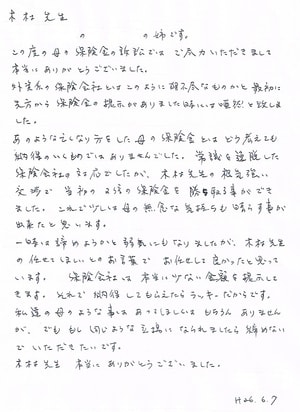 木村先生
の の姉です。
この度の母の保険金の訴訟では ご尽力いただきまして
本当にありがとうございました。
保険会社とはこのように理不尽なものかと 最初に
先方から保険金の提示がありました時には唖然と致しま
した。
あのような亡くなり方をした母の保険金とは どう考えても
納得のいくものではありませんでした。常識を逸脱した
保険会社の対応でしたが、木村先生の根気強い
交渉で 当初の2倍の保険金を勝ち取る事ができ
ました。これで少しは母の無念な気持ちも晴らす事が
出来たと思います。
一時は諦めようかと弱気にもなりましたが、木村先生
の任せてほしいとのお言葉で お任せして良かったと思って
います。 保険会社は本当に少ない金額を提示して
きます。それで納得してもらえたらラッキーだからです。
私達の母のような事はあってほしくはもちろんありません
が、でももし同じような立場になられましたら諦めない
でいただきたいです。
木村先生 本当にありがとうございました。
H26.6.7